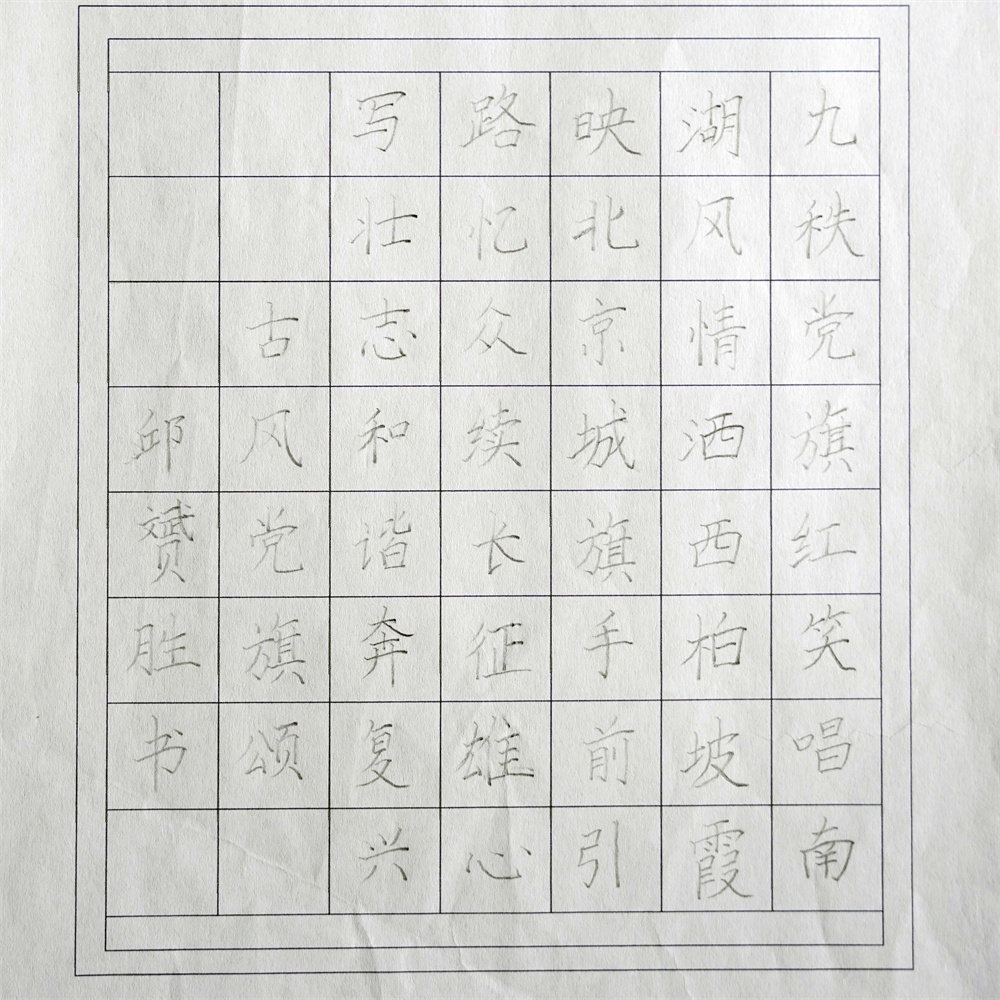 九秩党旗红笑唱南
湖风情洒西柏坡霞
映北京城旗手前引
路忆众续长征雄心
写壮志和谐奔复兴
古风党旗颂
邱赟胜书